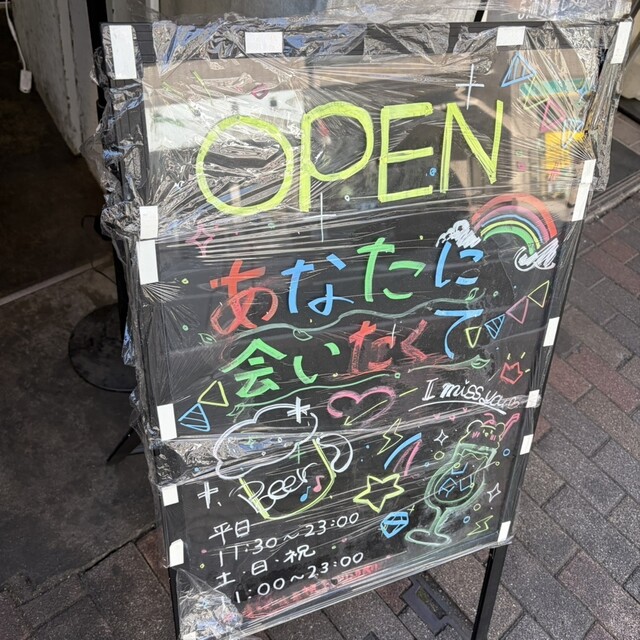 OPEN
あなたに
会いたくて
I miss you
Beer
平日
11:30～23:00
土・日・祝
11:00～23:00